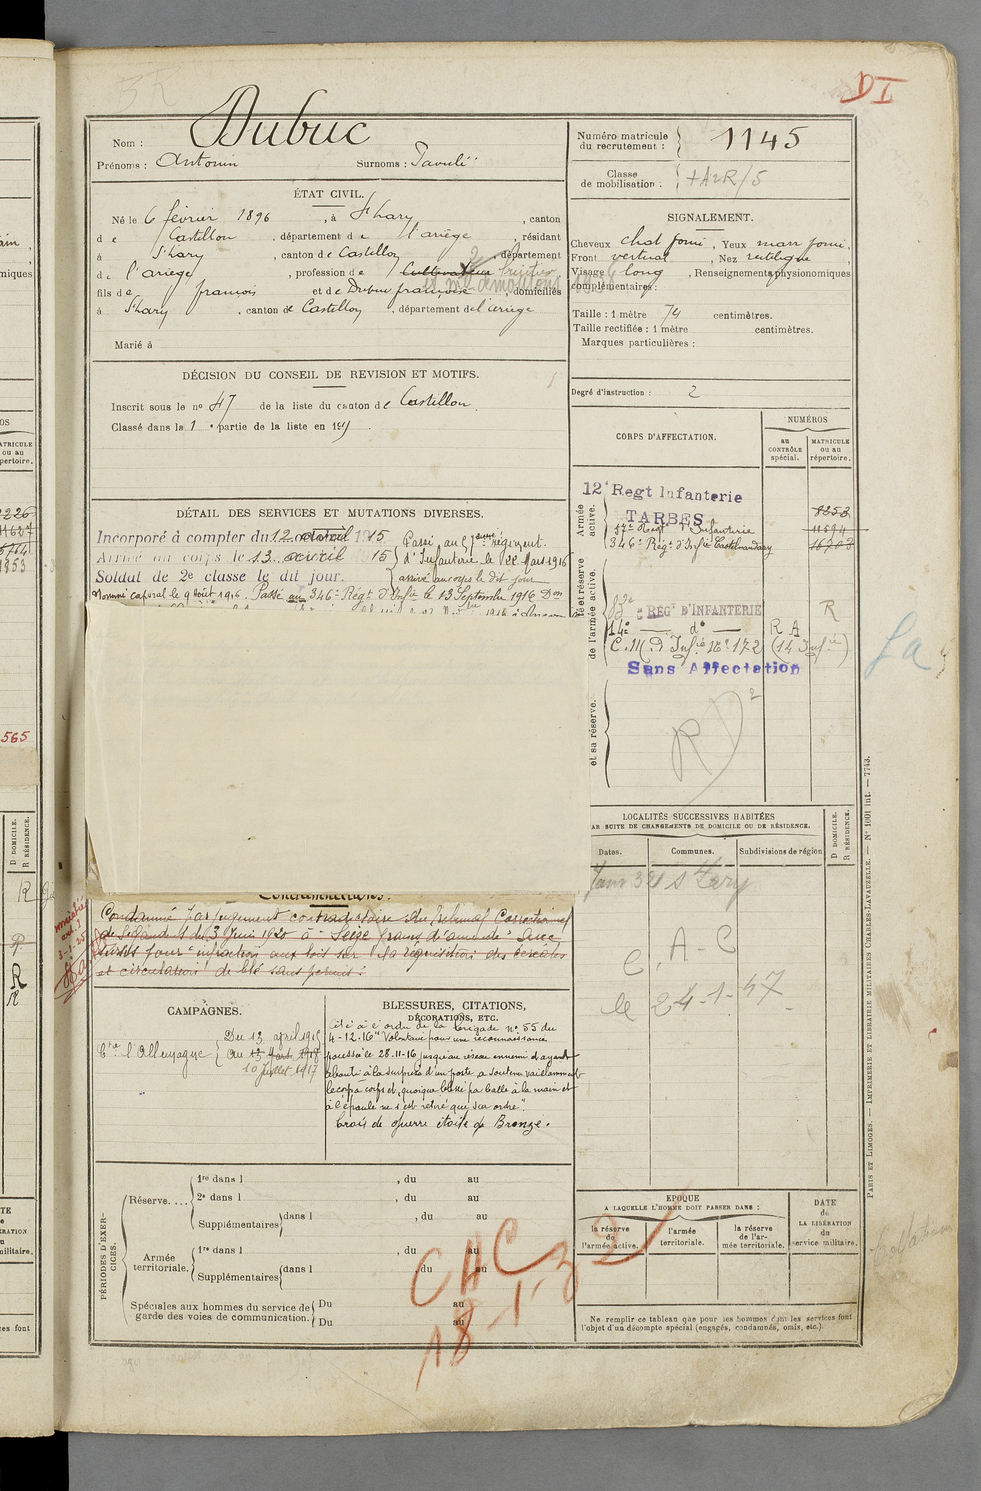 DI
Nom : Dubuc
Prénoms : Antonin Surnoms :
Numéro matricule
du recrutement : 1145
Classe
de mobilisation :
ÉTAT CIVIL.
Né le 6 février 1896 , à St Lary , canton
de Castillon , département de l'ariège , résidant
à St Lary , canton de Castillon , département
de l'ariège , profession de Cultivateur
fils de françois et de Dubuc françoise , domiciliés
à St Lary , canton de Castillon , département de l'ariège
Marié à
SIGNALEMENT.
Cheveux chat foncé , Yeux marr foncé ,
Front vertical , Nez rectiligne ,
Visage long , Renseignements physionomiques
complémentaires :
Taille : 1 mètre 74 centimètres.
Taille rectifiée : 1 mètre centimètres.
Marques particulières :
Degré d'instruction : 2
DÉCISION DU CONSEIL DE REVISION ET MOTIFS.
Inscrit sous le no 47 de la liste du canton de Castillon.
Classé dans la 1 e partie de la liste en 191
DÉTAIL DES SERVICES ET MUTATIONS DIVERSES.
Incorporé à compter du 12 avril 1915
Arrivé au corps le 13 avril 15
Soldat de 2e classe le dit jour.
Passé au régiment
d'Infanterie le 22 Mars 1916
arrivé au corps le dit jour
Nommé caporal le 9 Août 1916. Passé au 346e Régt d'Infie le 13 Septembre 1916
CORPS D'AFFECTATION.
NUMÉROS
au
CONTRÔLE
spécial.
MATRICULE
ou au
répertoire.
Armée
active.
12e Regt Infanterie
TARBES
346e Régt d'Infie Castelnaudary
de l'armée active.
REGt D'INFANTERIE
R
14e do R A
C.M. d'Infie No 172 (14 Infie)
Sans Affectation
et sa réserve.
RD 2
LOCALITÉS SUCCESSIVES HABITÉES
PAR SUITE DE CHANGEMENTS DE DOMICILE OU DE RÉSIDENCE.
Dates.
Communes.
Subdivisions de région
D DOMICILE.
R RÉSIDENCE.
Janv 32 St Lary
C.A-C
le 24-1-47
Condamnations.
Condamné par jugement contradictoire du tribunal Correctionnel
de St Girons du 3 Juin 1920 à Seize francs d'amende avec
sursis pour infraction aux lois sur la réquisition des céréales
et circulation de blé sans permis.
CAMPAGNES.
Cre l'Allemagne
Du 13 april 1915
au
10 Juillet 1917
BLESSURES, CITATIONS,
DÉCORATIONS, ETC.
Cité à l'ordre de la brigade no 55 du
4-12-16 "Volontaire pour une reconnaissance
poussée le 28-11-16 jusqu'au réseau ennemi d'ayant
abouti à la surprise d'un poste, a soutenu vaillamment
le corps à corps et, quoique blessé par balle à la main et
à l'épaule ne s'est retiré que sur ordre".
Croix de guerre étoile de Bronze.
PÉRIODES D'EXERCICES.
Réserve....
1re dans l , du au
2e dans l , du au
Supplémentaires dans l , du au
Armée
territoriale.
1re dans l , du au
Supplémentaires dans l , du au
Spéciales aux hommes du service de
garde des voies de communication.
Du au
Du au
CAC
18-1-32
EPOQUE
A LAQUELLE L'HOMME DOIT PASSER DANS :
la réserve
de
l'armée active.
l'armée
territoriale.
la réserve
de l'armée territoriale.
DATE
de
LA LIBÉRATION
du
service militaire.
Ne remplir ce tableau que pour les hommes dont les services font
l'objet d'un décompte spécial (engagés, condamnés, omis, etc.).
PARIS ET LIMOGES. — IMPRIMERIE ET LIBRAIRIE MILITAIRES CHARLES-LAVAUZELLE. — No 1001 int. — 7743.